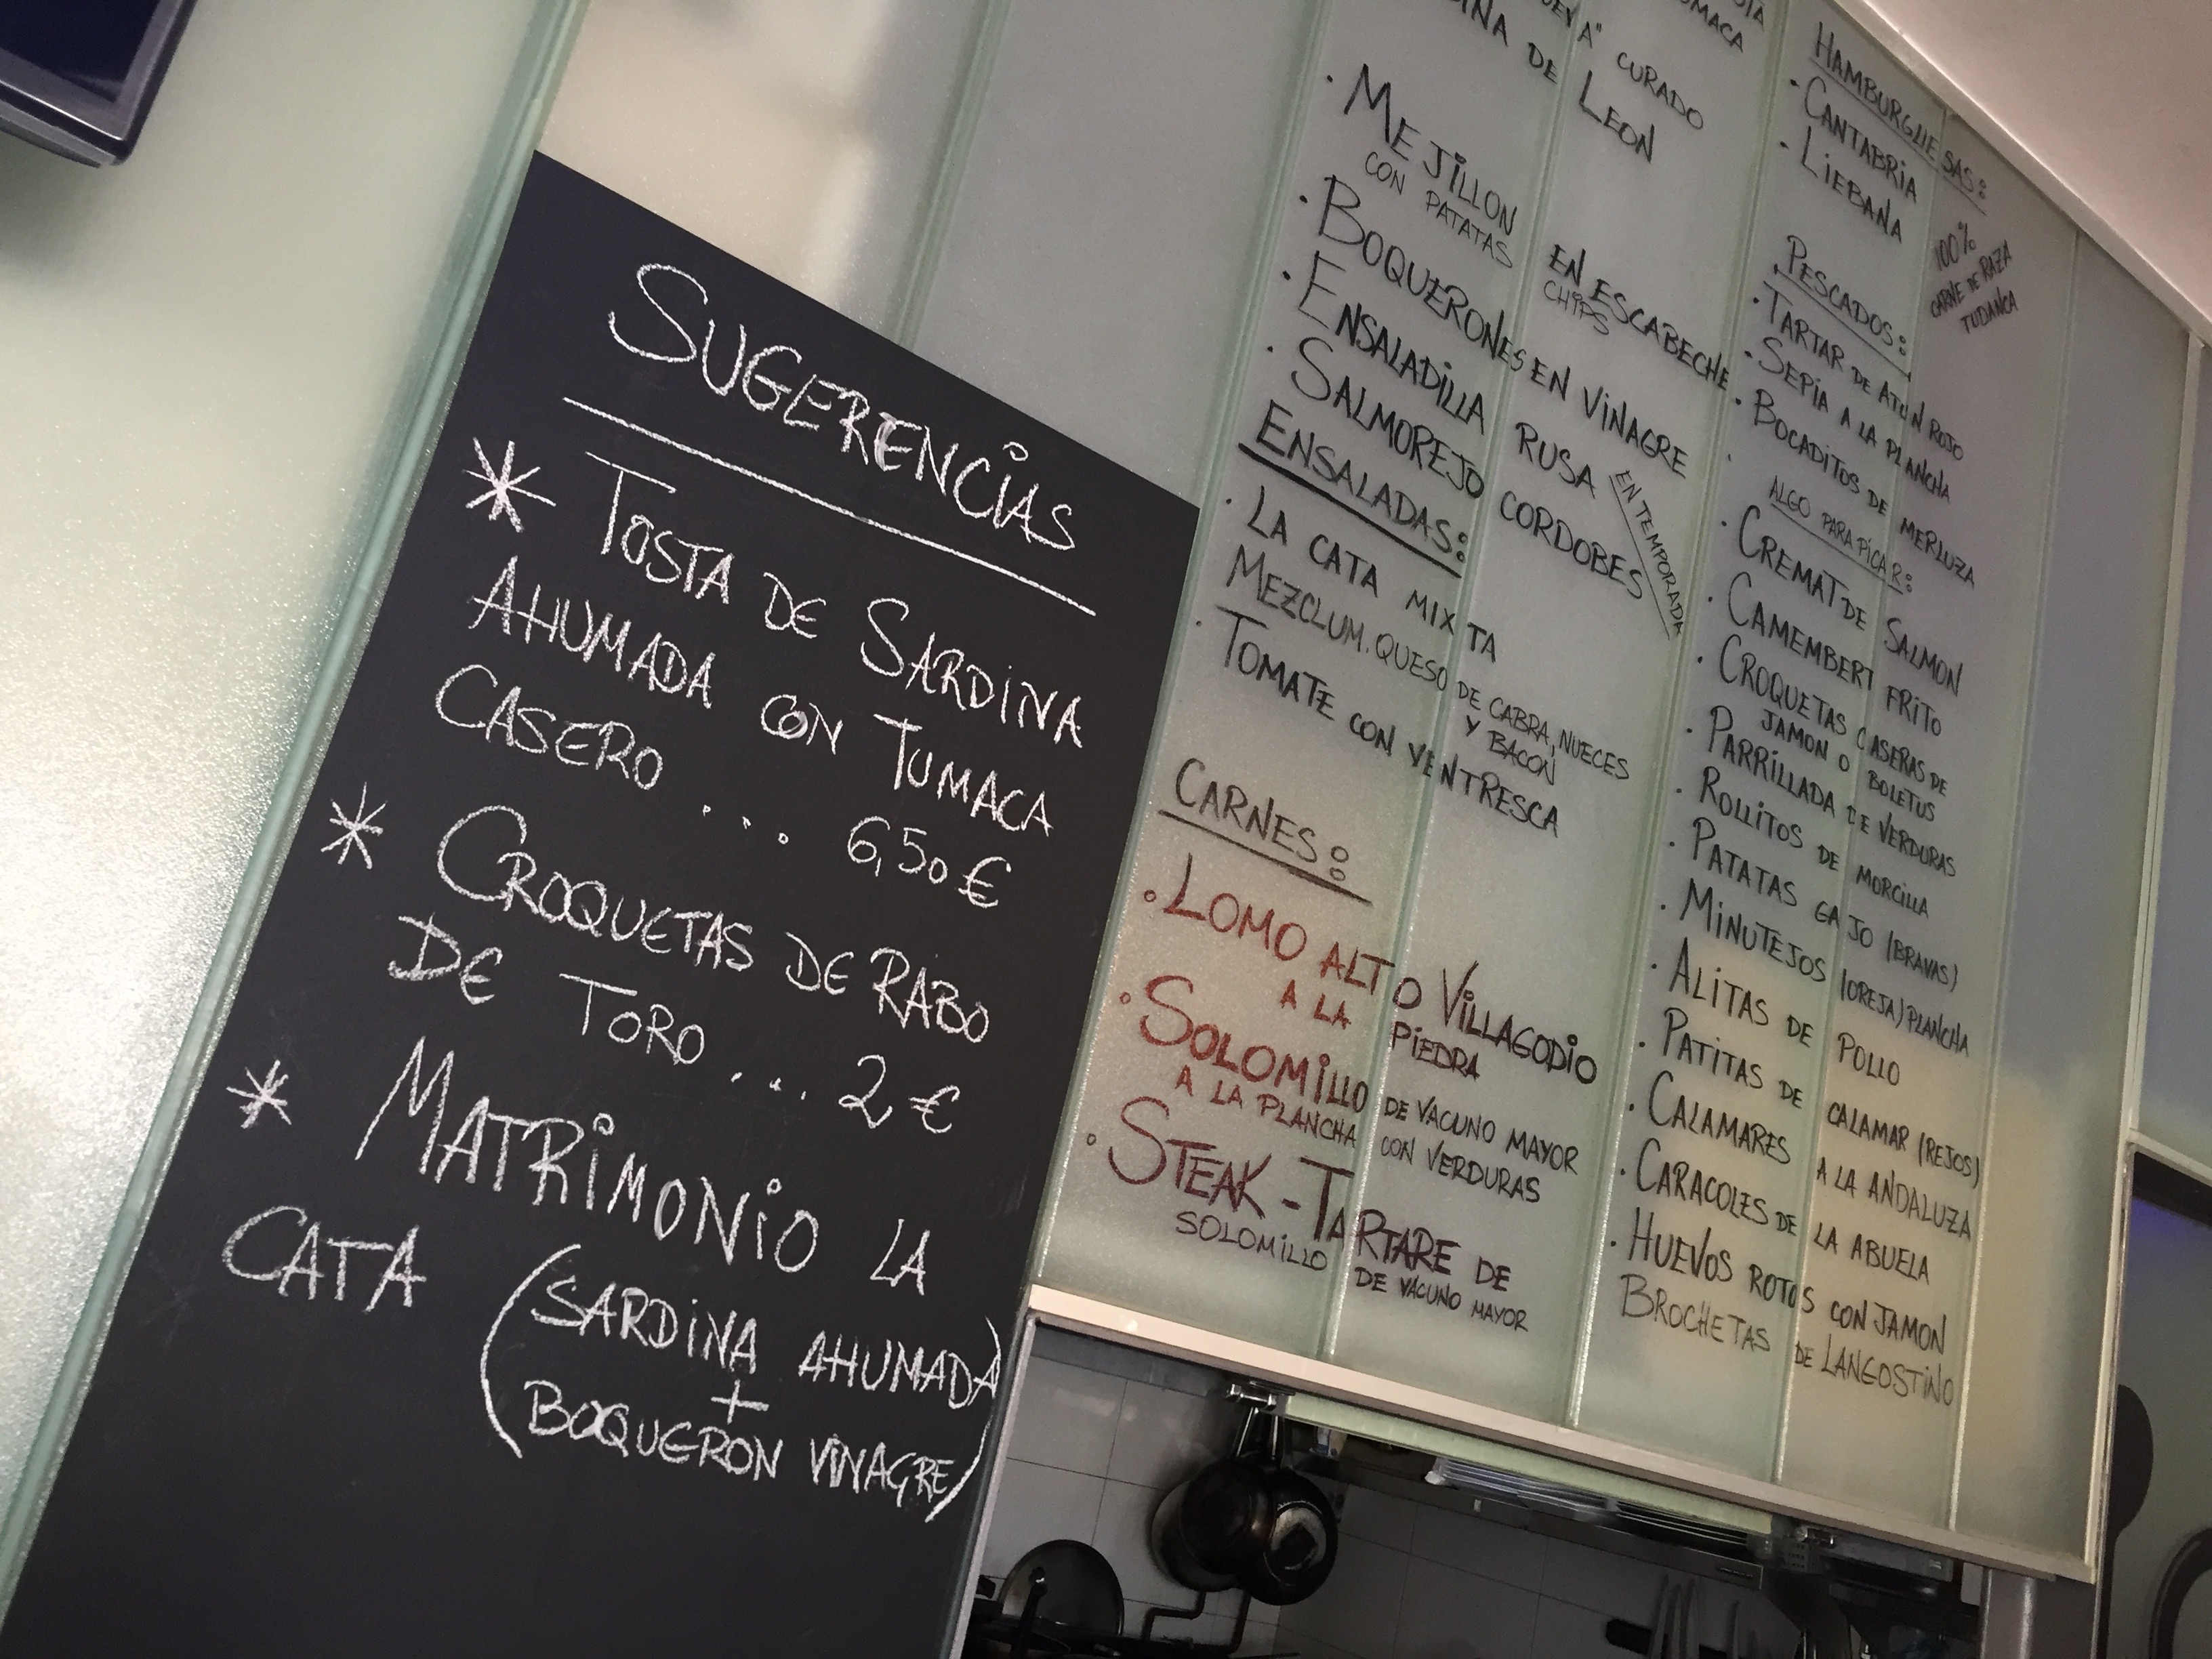 SUGERENCIAS
* TOSTA DE SARDINA
AHUMADA CON TUMACA
CASERO ... 6,50 €
* CROQUETAS DE RABO
DE TORO ... 2 €
* MATRIMONIO LA
CATA (SARDINA AHUMADA
+
BOQUERON VINAGRE)
CURADO
DE LEON
· MEJILLON EN ESCABECHE
CON PATATAS CHIPS
· BOQUERONES EN VINAGRE
· ENSALADILLA RUSA
· SALMOREJO CORDOBES
EN TEMPORADA
ENSALADAS:
· LA CATA MIXTA
MEZCLUM, QUESO DE CABRA, NUECES
Y BACON
· TOMATE CON VENTRESCA
CARNES:
· LOMO ALTO VILLAGODIO
A LA PIEDRA
· SOLOMILLO DE VACUNO MAYOR
A LA PLANCHA CON VERDURAS
· STEAK-TARTARE DE
SOLOMILLO DE VACUNO MAYOR
HAMBURGUESAS:
· CANTABRIA
· LIEBANA
100%
CARNE DE RAZA
TUDANCA
PESCADOS:
· TARTAR DE ATUN ROJO
· SEPIA A LA PLANCHA
· BOCADITOS DE MERLUZA
ALGO PARA PICAR:
· CREMAT DE SALMON
· CAMEMBERT FRITO
· CROQUETAS CASERAS DE
JAMON O BOLETUS
· PARRILLADA DE VERDURAS
· ROLLITOS DE MORCILLA
· PATATAS GAJO (BRAVAS)
· MINUTEJOS (OREJA) PLANCHA
· ALITAS DE POLLO
· PATITAS DE CALAMAR (REJOS)
· CALAMARES A LA ANDALUZA
· CARACOLES DE LA ABUELA
· HUEVOS ROTOS CON JAMON
BROCHETAS DE LANGOSTINO